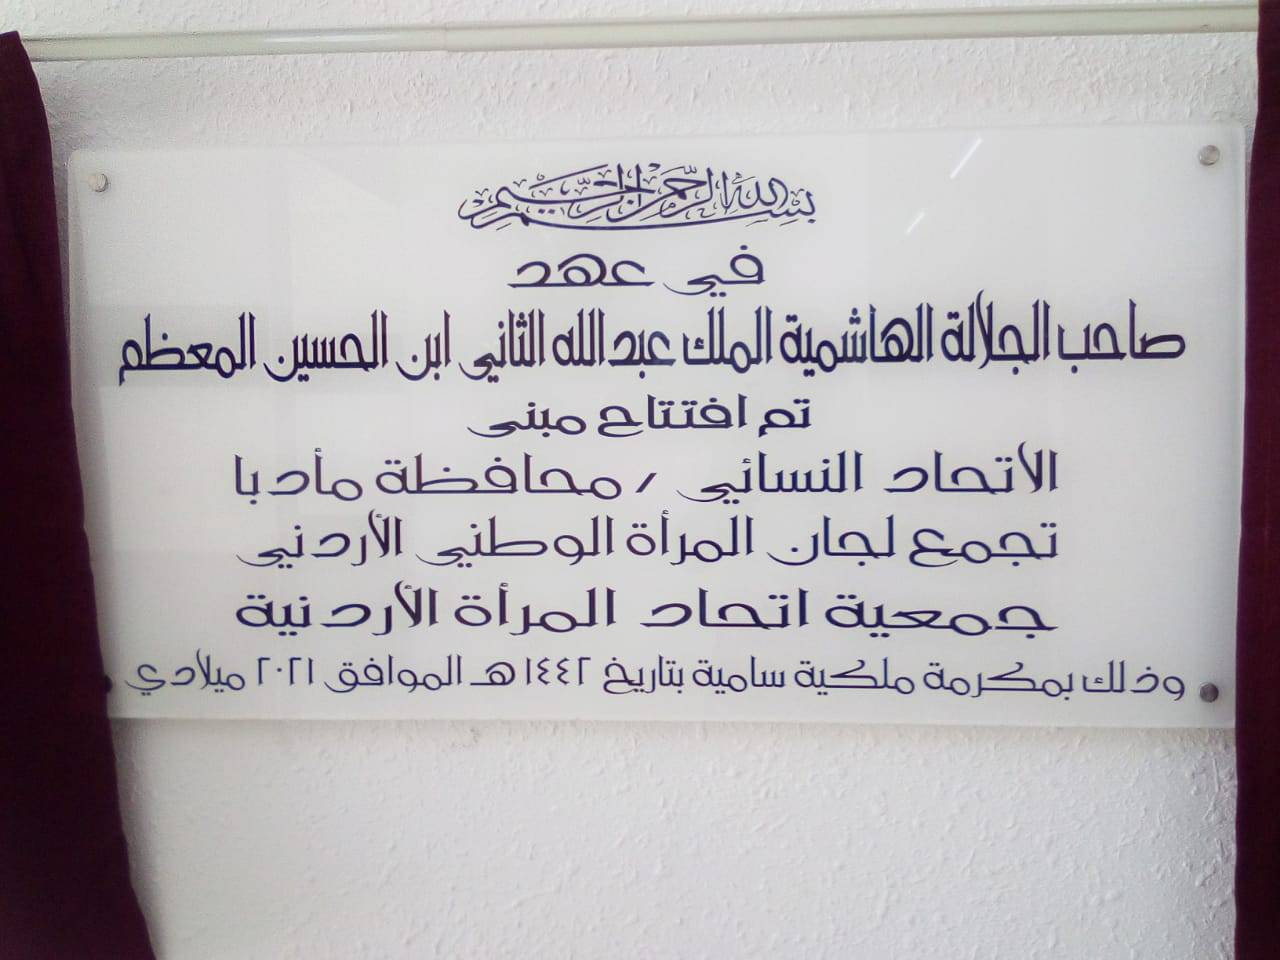 بسم الله الرحمن الرحيم
في عهد
صاحب الجلالة الهاشمية الملك عبدالله الثاني ابن الحسين المعظم
تم افتتاح مبنى
الأتحاد النسائي / محافظة مأدبا
تجمع لجان المرأة الوطني الأردني
جمعية اتحاد المرأة الأردنية
وذلك بمكرمة ملكية سامية بتاريخ ١٤٤٢هـ الموافق ٢٠٢١ ميلادي